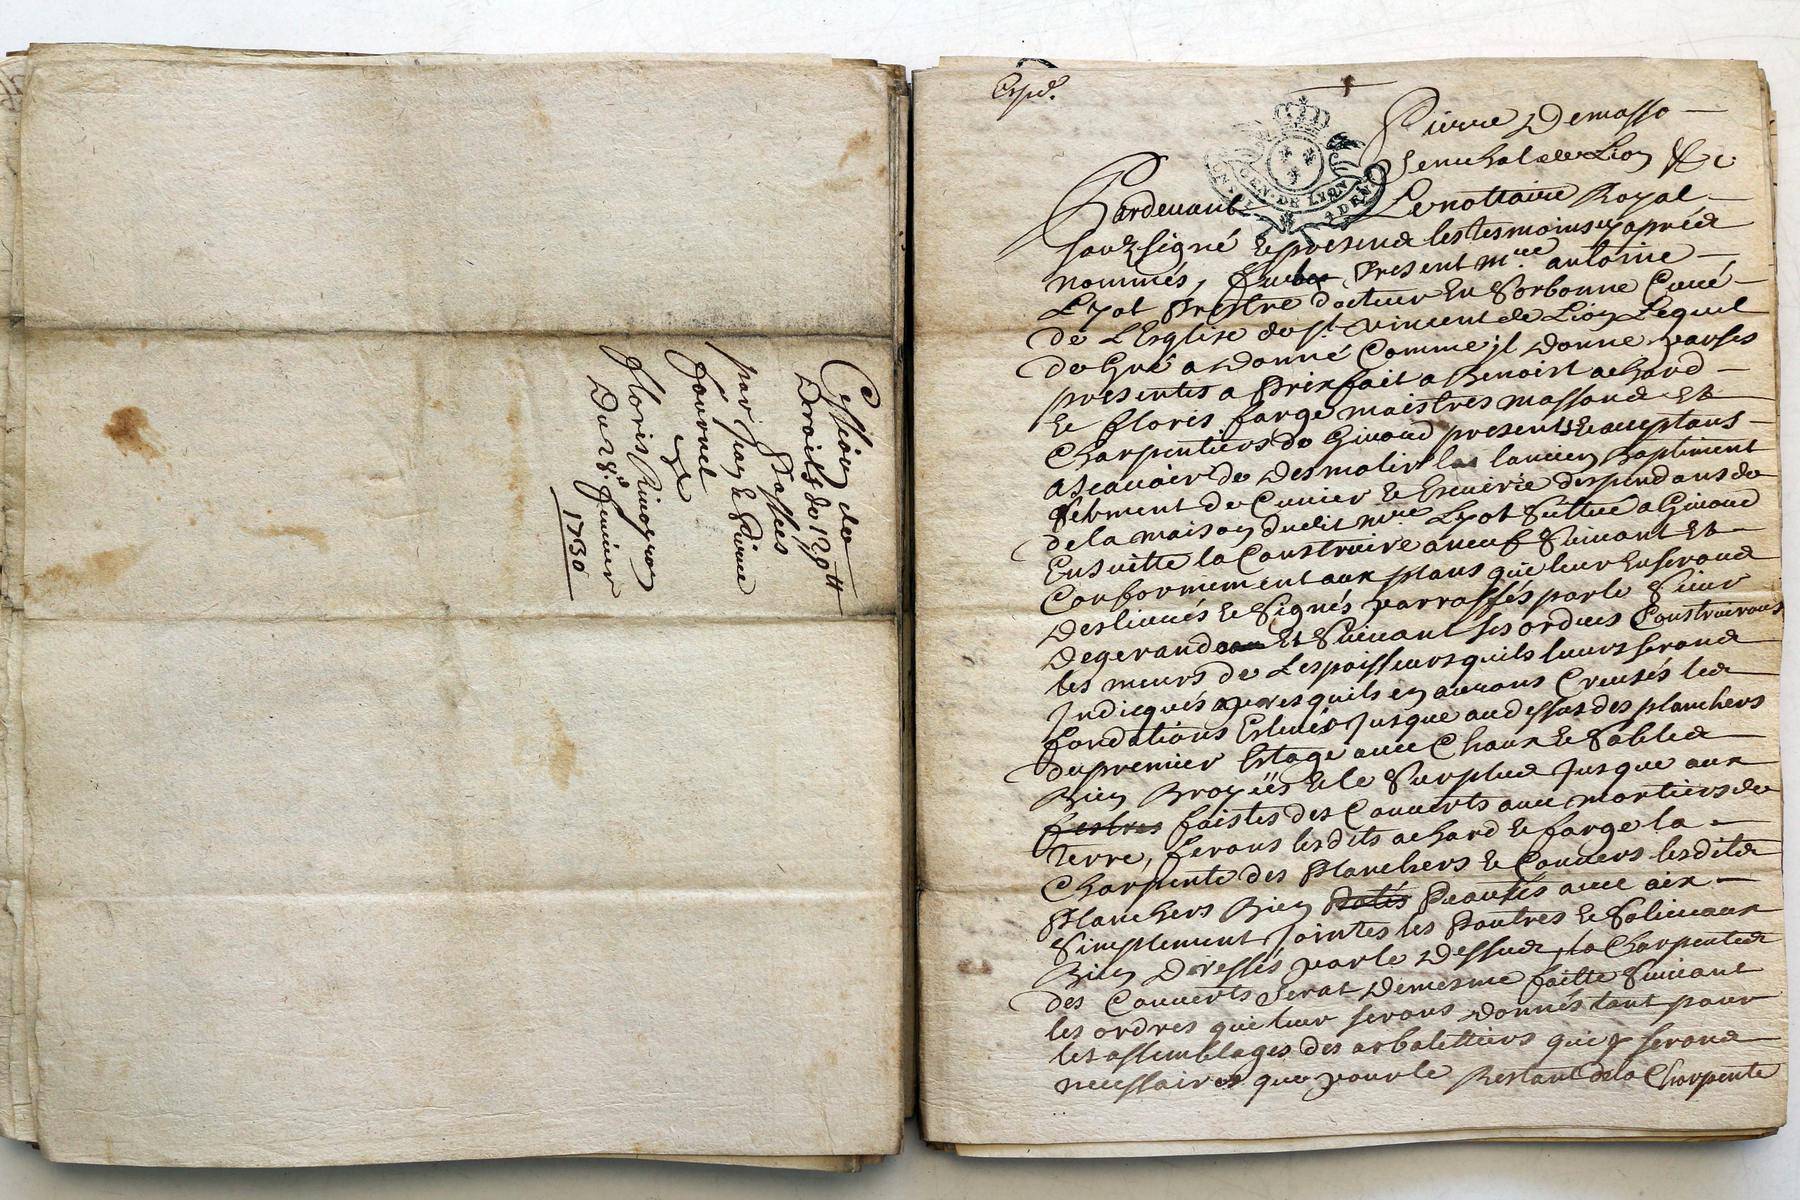 Cession de
Droits de 129tt
Passés
par Jean & Pierre
Fournel
a
Floris Rivogron
Du 28e. Feuvier
1730
Expd.
Pierre Demasso
Senechal de Lion &c
GEN. DE LYON
Pardeuant Le nottaire Royal
souzsigné & presens les tesmoins cy apres
nommés, Present mre antoine
Lyot Prestre docteur En Sorbonne Curé
de L'Esglise de st vincent de Lion Lequel
de Gré a Donné Comme jl Donne par ses
presentes a Prixfait a Benoist achard
& floris farge maistres massons Et
Charpentiers de Giuord presents & acceptans
ascauoir de Desmolir lancien Baptiment
seruent de Cuuier & Escuirie despendans de
de la maison dudit mre Lyot Scittue a Giuord
Ensuitte la Construire aneuf Suiuant Et
Conformement aux plans que leur En seront
Desliurés & Signés par le Sieur
Degerando Et Suiuant ses ordres Construirons
les meurs de L'espoisseurs quils leurs seront
Indicqués apres quils en aurons Creusés les
fondations Esleués Jusque au dessus des planchers
du premier Estage auec Chaux & Sables
Bien Broyés & le Surplus Jusque aux
festres faistes des Couuerts auec mortiers de
Terre, ferons lesdits achard & farge la
Charpente des Planchers & Couuers lesdits
Planchers Bien auec aix
Simplement Jointes les Poutres & Soliueaux
Bien Dressés par le Dessus, la Charpentes
des Couuerts Serat Demesme faitte Suiuant
les ordres que leur serons Donnés tant pour
les assemblages des arbalettiers quj y serons
necessaires que pour le Restant de la Charpente